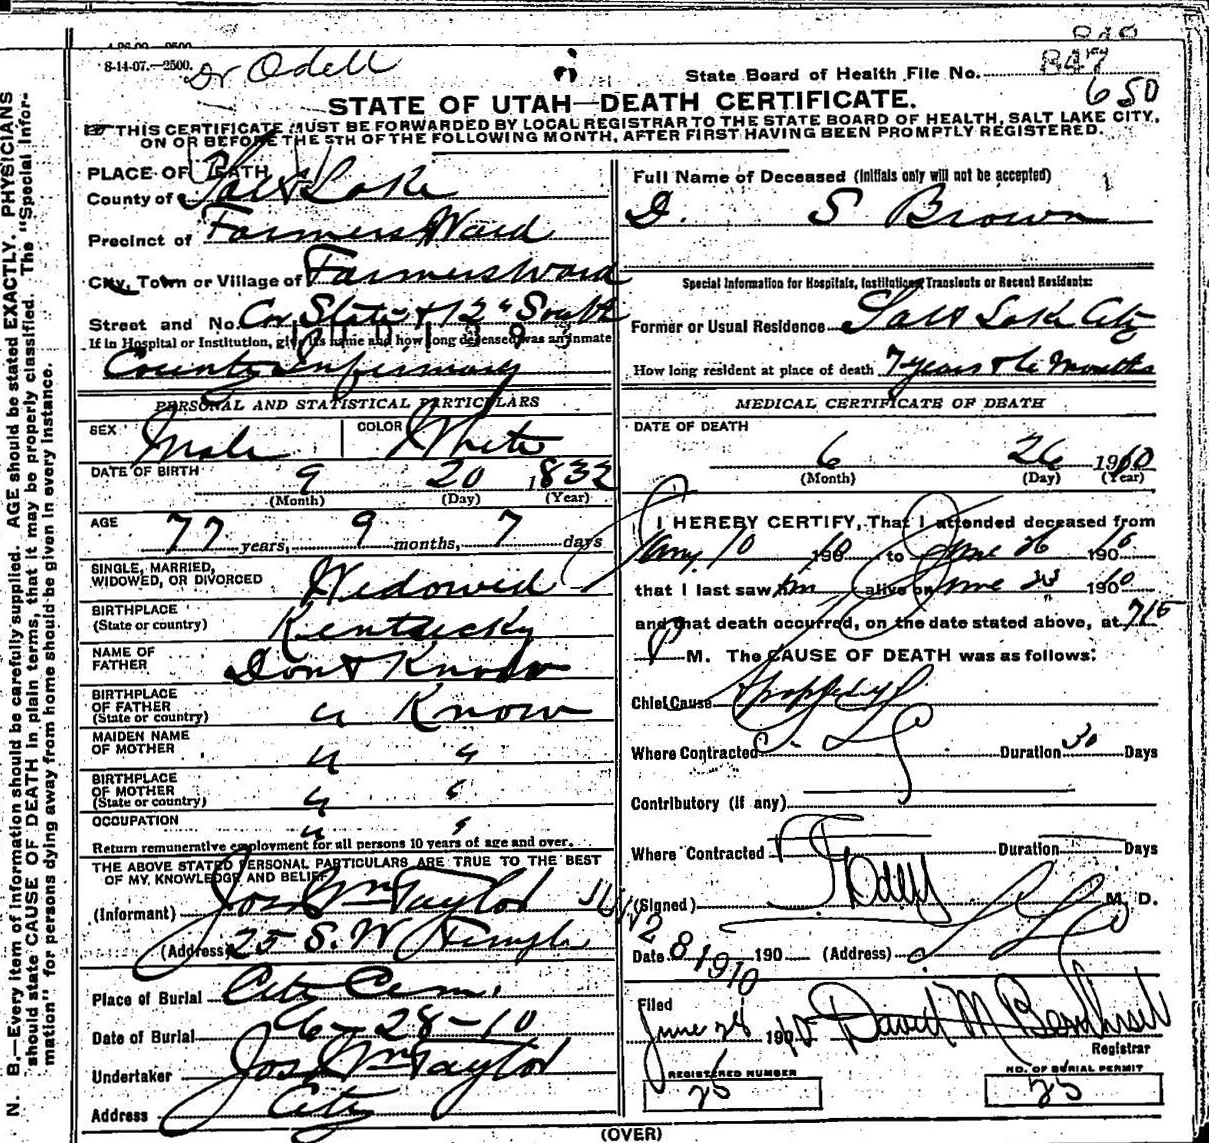 8-14-07.—2500.
Dr Odell
State Board of Health File No. 847
650
STATE OF UTAH—DEATH CERTIFICATE.
THIS CERTIFICATE MUST BE FORWARDED BY LOCAL REGISTRAR TO THE STATE BOARD OF HEALTH, SALT LAKE CITY,
ON OR BEFORE THE 5TH OF THE FOLLOWING MONTH, AFTER FIRST HAVING BEEN PROMPTLY REGISTERED.
N. B.—Every item of information should be carefully supplied. AGE should be stated EXACTLY. PHYSICIANS
should state CAUSE OF DEATH in plain terms, that it may be properly classified. The "Special Infor-
mation" for persons dying away from home should be given in every instance.
PLACE OF DEATH
County of Salt Lake
Precinct of Farmers Ward
City, Town or Village of Farmers Ward
Street and No. Cor State & 12" South
If in Hospital or Institution, give its name and how long deceased was an inmate
County Infirmary
PERSONAL AND STATISTICAL PARTICULARS
SEX Male COLOR White
DATE OF BIRTH 9 20 1832
(Month) (Day) (Year)
AGE
77 years, 9 months, 7 days
SINGLE, MARRIED,
WIDOWED, OR DIVORCED Widowed
BIRTHPLACE
(State or country) Kentucky
NAME OF
FATHER Dont Know
BIRTHPLACE
OF FATHER
(State or country) " Know
MAIDEN NAME
OF MOTHER " "
BIRTHPLACE
OF MOTHER
(State or country) " "
OCCUPATION " "
Return remunerative employment for all persons 10 years of age and over.
THE ABOVE STATED PERSONAL PARTICULARS ARE TRUE TO THE BEST
OF MY KNOWLEDGE AND BELIEF
(Informant) Jos Wm Taylor
(Address) 25 S. W Temple
Place of Burial City Cem.
Date of Burial 6-28-10
Undertaker Jos Wm Taylor
Address City
Full Name of Deceased (Initials only will not be accepted)
D. S Brown
Special Information for Hospitals, Institutions, Transients or Recent Residents:
Former or Usual Residence Salt Lake City
How long resident at place of death 7 years & 6 Months
MEDICAL CERTIFICATE OF DEATH
DATE OF DEATH
6 26 1910
(Month) (Day) (Year)
I HEREBY CERTIFY, That I attended deceased from
Jany 10 190 10 to June 26 190 10
that I last saw him alive on June 190 10
and that death occurred, on the date stated above, at 715
P M. The CAUSE OF DEATH was as follows:
Chief Cause Apoplexy
Where Contracted S. L. Duration 30 Days
Contributory (if any)
Where Contracted Duration Days
(Signed) Odell M. D.
Date 8 1910 190 (Address) S L Co
Filed
June 28 190 10 David M
Registrar
REGISTERED NUMBER
25
NO. OF BURIAL PERMIT
25
(OVER)